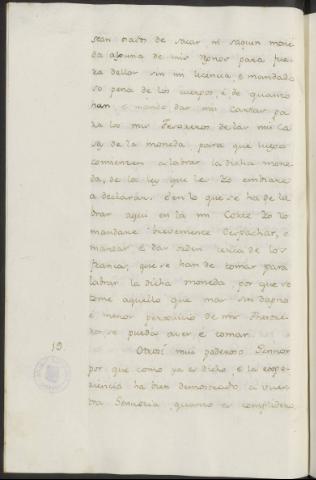 sean osados de sacar, ni saquen mone
da alguna de mis Reynos para fue
ra dellos sin mi licencia, é mandado
so pena de los cuerpos, é de quanto
han, é mando dar mis Cartas pa
ra los mis Tesoreros de las mis Ca
sas de la moneda para que luego
comiencen a labrar la dicha mone
da, de la ley que les Yo embiare
a declarar. É en lo que se ha de la
brar aqui en la mi Corte Yo lo
mandaré brevemente despachar, é
mandar, é dar orden cerca de los
que se han de tomar para
labrar la dicha moneda, por que se
tome aquello que mas sin dapno
é menor perjuicio de mis
se pueda aver é tomar.
19. Otrosi mui poderoso Sennor
por que como ya es dicho, é la espe
riencia ha bien demostrado, a Vues
tra Sennoria, quanto es complidero